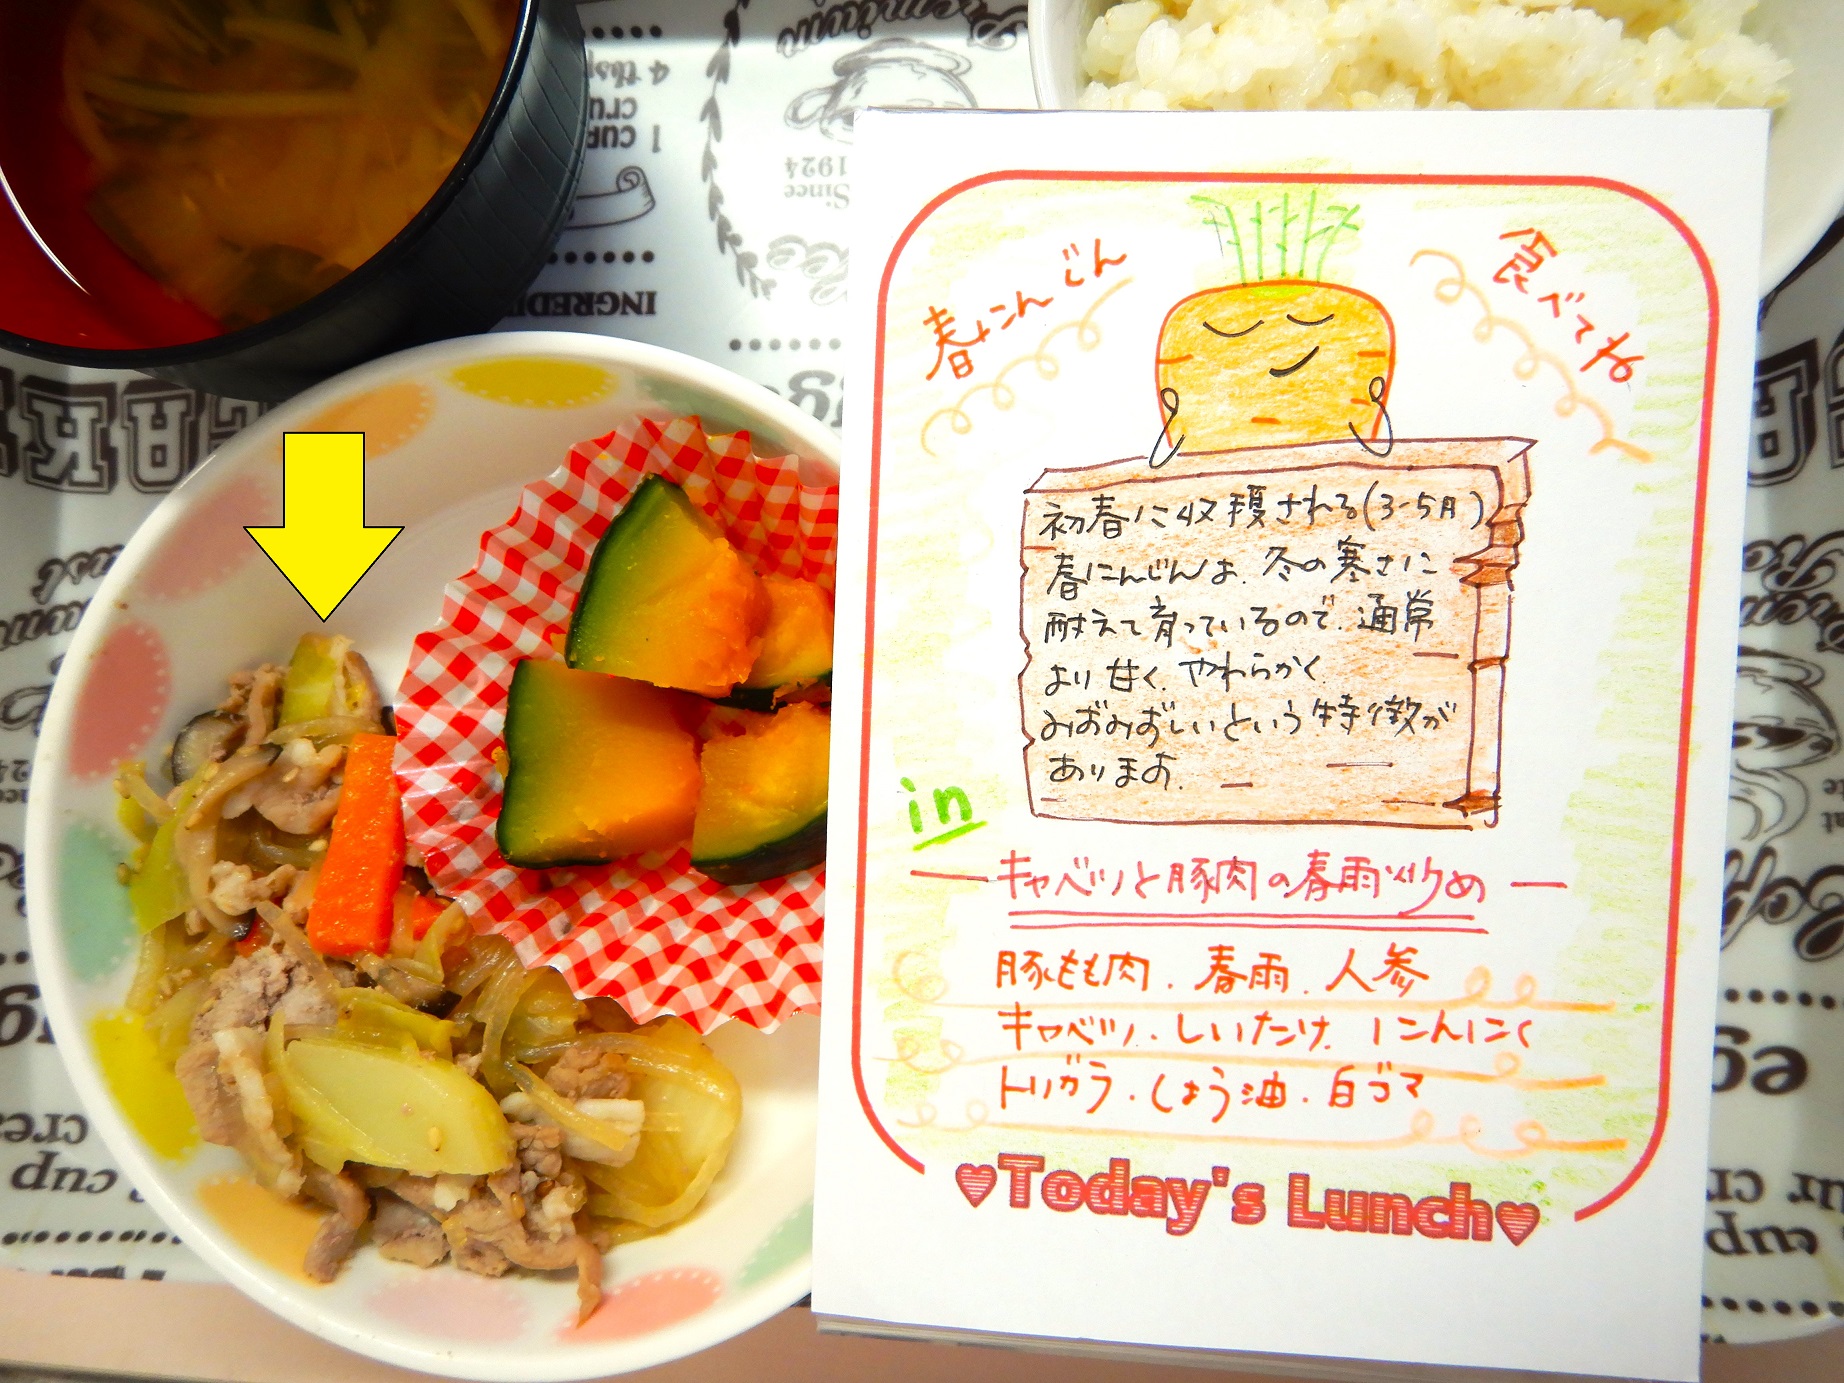 Premium
4 tbsp
1 cup
Since
1924
INGREDIE
春にんじん
食べてね
初春に収穫される(3-5月)
春にんじんは、冬の寒さに
耐えて育っているので、通常
より甘く、やわらかく、
みずみずしいという特徴が
あります。
in
キャベツと豚肉の春雨炒め
豚もも肉、春雨、人参
キャベツ、しいたけ、にんにく
トリガラ、しょう油、白ゴマ
♥Today's Lunch♥
cup